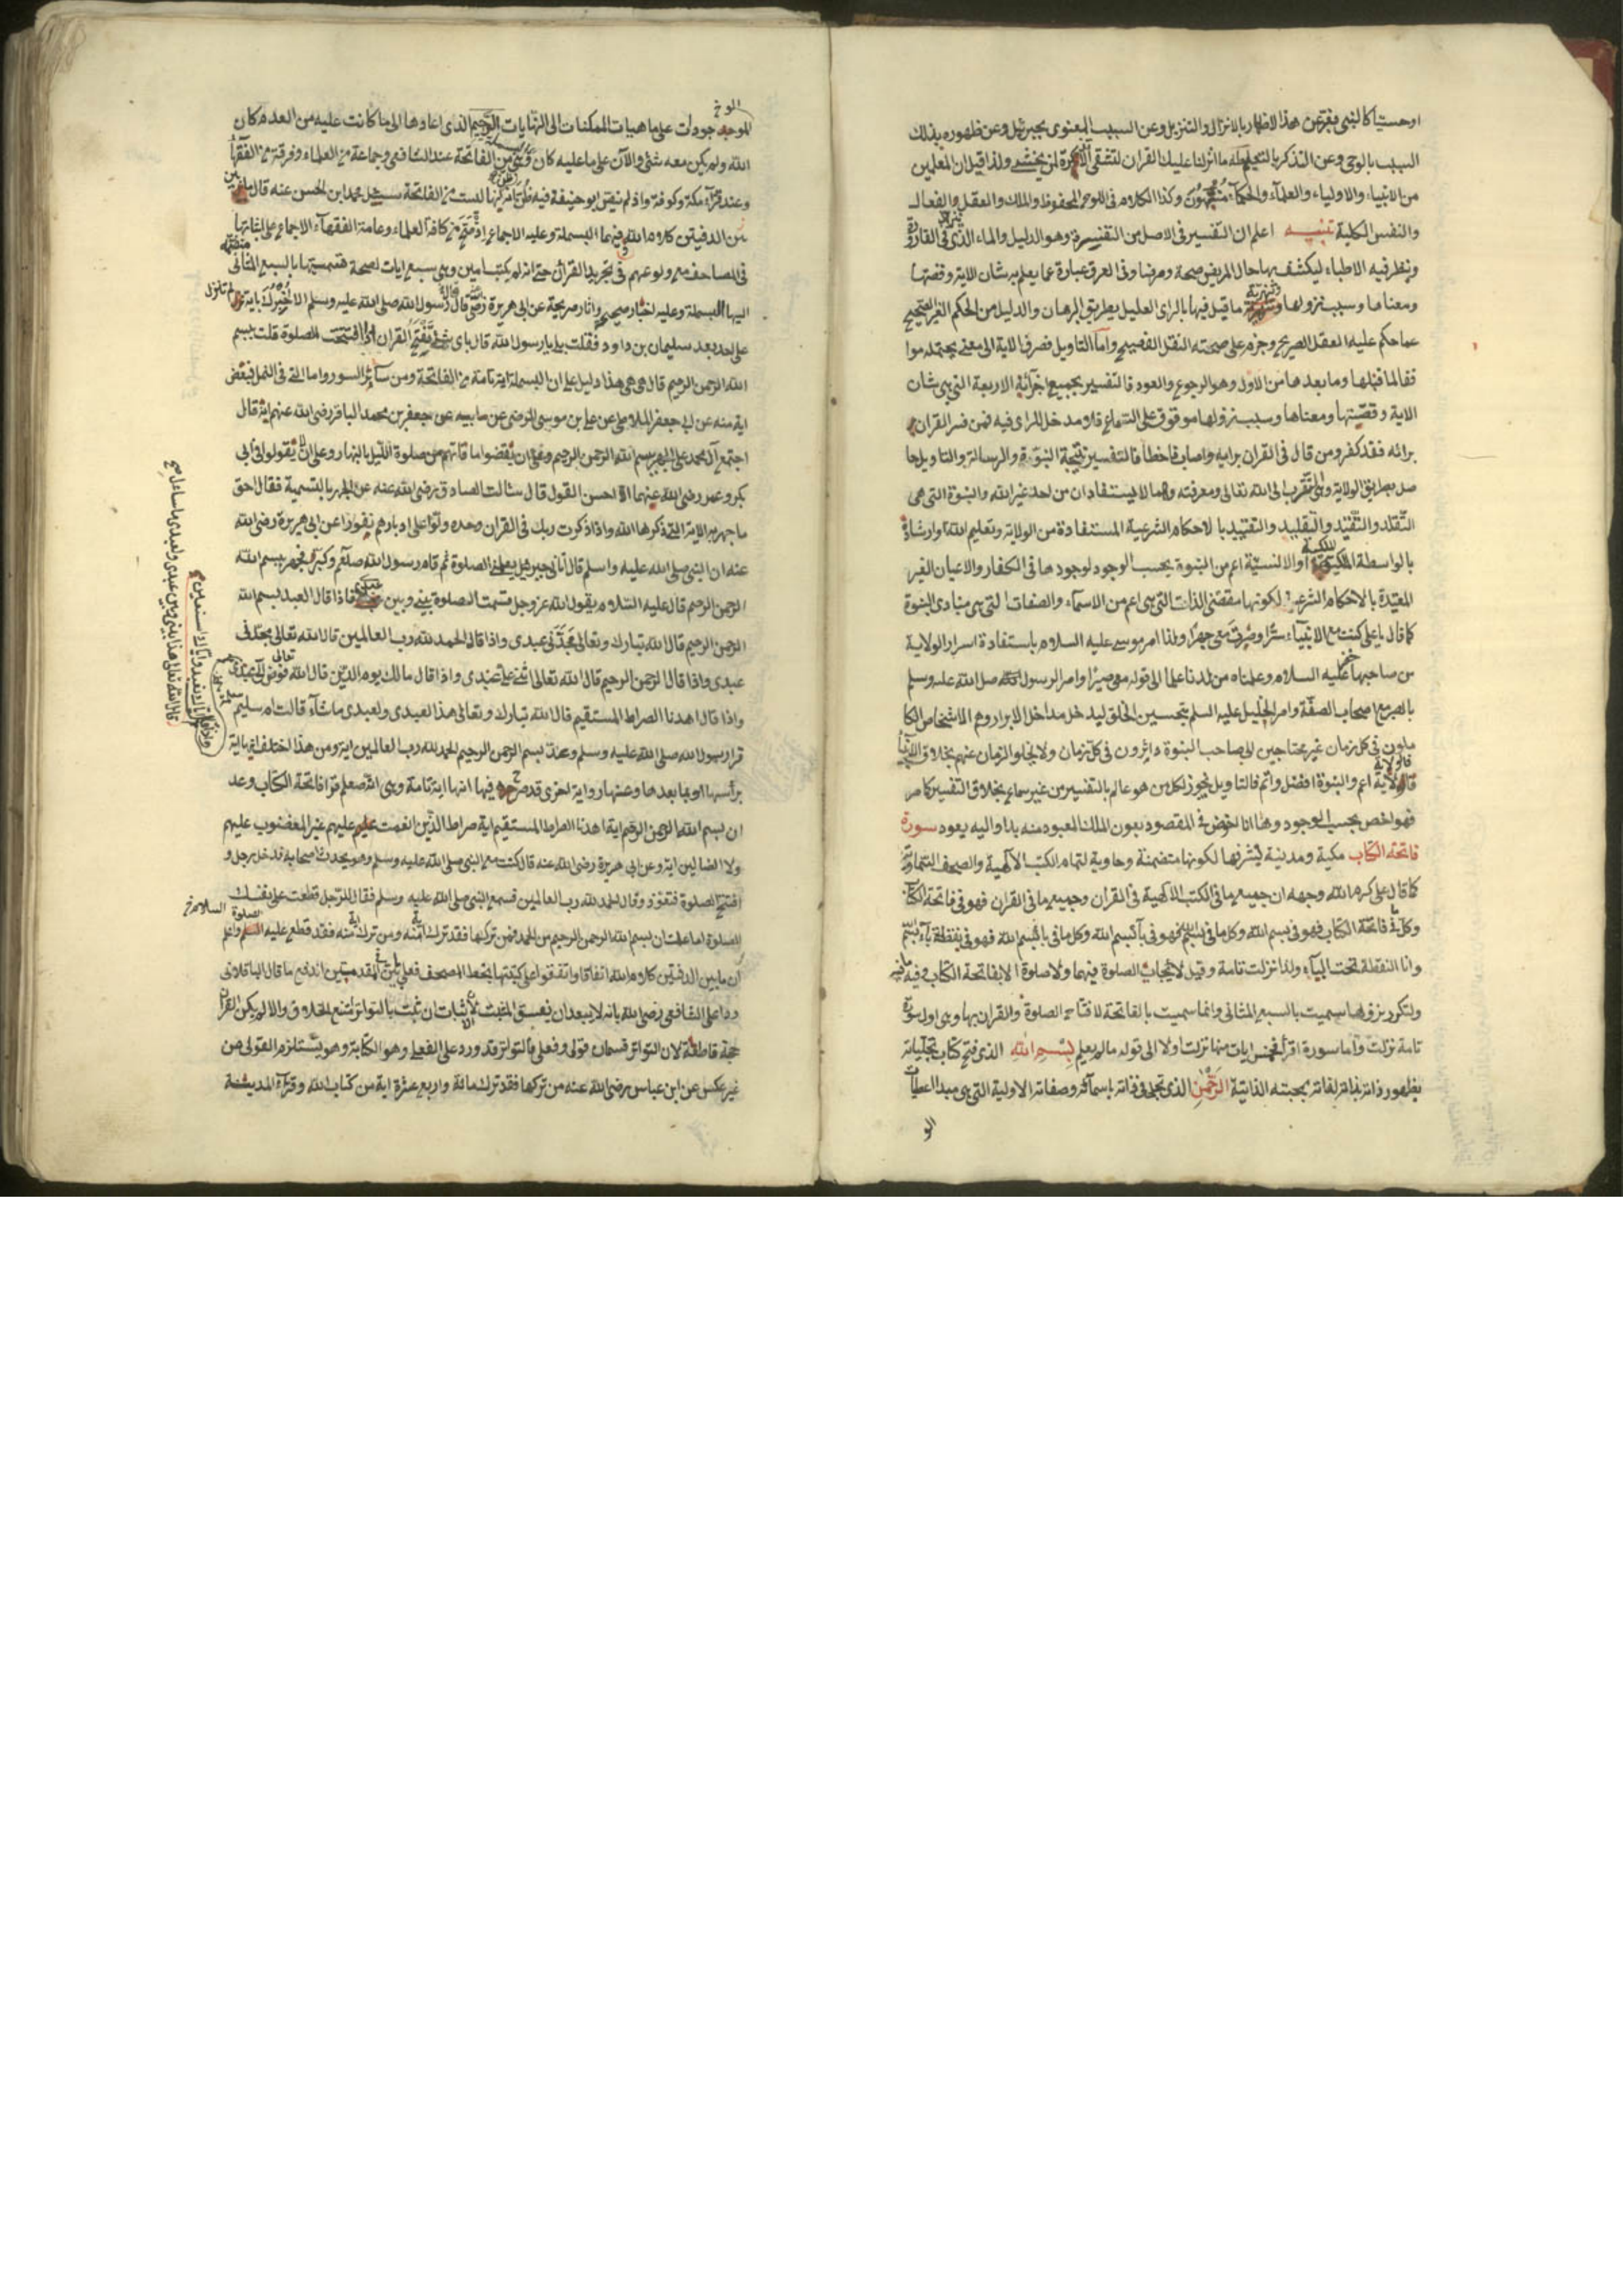 اوحسيا كالنبي فعبر عن هذا الاظهار بالانزال والتنزيل وعن السبب المعنوي بجبرئيل وعن ظهوره بذلك
السبب بالوحي وعن التذكر بالتعليم ما انزلنا عليك القران لتشقى الا تذكرة لمن يخشى ولذا قيل ان المعلمين
من الانبياء والاولياء والعلمآء والحكمآء منبهون وكذا الكلام في اللوح المحفوظ والملك والعقل الفعال
والنفس الكلية تنبيه اعلم ان التفسير في الاصل من التفسرة وهو الدليل والماء الذي في القارورة
وينظر فيه الاطباء ليكشف بها حال المريض صحة ومرضا وفي العرف عبارة عما يعلم به شان الاية وقصتها
ومعناها وسبب نزولها وتنزيه ما قيل فيها بالراى العليل بطريق البرهان والدليل من الحكم الغير الصحيح
عما حكم عليه العقل الصريح وجزم على صحته النقل الفصيح واما التاويل فصرف الاية الى معنى يحتمله موا
فقا لما قبلها وما بعدها من الاول وهو الرجوع والعود فالتفسير بجميع اجزائه الاربعة التي هي شان
الاية وقصتها ومعناها وسبب نزولها موقوف على السماع فلا مدخل للراى فيه فمن فسر القران
برائه فقد كفر ومن قال في القران برايه واصاب فاخطأ فالتفسير نتيجة النبوة والرسالة والتاويل حا
صل بطريق الولاية والتقرب الى الله تعالى ومعرفته وهما لا يستفادان من احد غير الله والنبوة التي هي
التقلد والتقيد والتقليد والتقييد بالاحكام الشرعية المستفادة من الولاية وتعليم الله وارشاده
بالواسطة الملكية او الانسية اعم من النبوة بحسب الوجود لوجودها في الكفار والاعيان الغير
المقيدة بالاحكام الشرعية لكونها مقتضى الذات التي هي اعم من الاسماء والصفات التي هي مبادى النبوة
كما قال يا علي كنت مع الانبياء سرا وصرت معي جهرا ولذا امر موسى عليه السلام باستفادة اسرار الولاية
من صاحبها خضر عليه السلام وعلمناه من لدنا علما الى قوله معي صبرا وامر الرسول صلى الله عليه وسلم
بالصبر مع اصحاب الصفة وامر الخليل عليه السلم بتحسين الخلق ليدخل مداخل الابرار وهم الاشخاص الكا
ملون في كل زمان غير محتاجين الى صاحب النبوة دائرون في كل زمان ولا يخلو الزمان عنهم بخلاف الانبياء
فالولاية اعم والنبوة افضل واتم فالتاويل يجوز لكل من هو عالم بالتفسير من غير سماع بخلاف التفسير كما مر
فهو اخص بحسب الوجود وها انا اخوض في المقصود بعون الملك المعبود منه بدا واليه يعود سورة
فاتحة الكتاب مكية ومدنية لشرفها لكونها متضمنة وحاوية لتمام الكتب الالهية والصحف السماوية
كما قال علي كرم الله وجهه ان جميع ما في الكتب الالهية في القرأن وجميع ما في القران فهو في فاتحة الكتاب
وكل ما في فاتحة الكتاب فهو في بسم الله وكل ما في بسم الله فهو في بآء بسم الله وكل ما في باء بسم الله فهو في نقطة بآء بسم
وانا النقطة تحت البآء ولذا نزلت تامة وقيل لايجاب الصلوة فيهما ولا صلوة الا بفاتحة الكتاب
ولتكرر نزولها سميت بالسبع المثاني وانما سميت بالفاتحة لافتتاح الصلوة والقران بها وهي اول سورة
تامة نزلت واما سورة اقرأ فخمس ايات منها نزلت اولا الى قوله ما لم يعلم بسم الله الذي فتح كتاب تجلياته
بظهور ذاته بذاته لذاته بمحبته الذاتية الرحمن الذي تجلى في ذاته باسمآئه وصفاته الاولية التي هي مبدا اعطاء
الو
الوخ
الموجودات على ماهيات الممكنات الى النهايات الرحيم الذي اعادها الى ما كانت عليه من العدم كان
الله ولم يكن معه شئ والآن على ما عليه كان وهي من الفاتحة عند الشافعي وجماعة من العلماء وفرقة من الفقهآ
وعند قرآء مكة وكوفة واذ لم ينص ابو حنيفة فيه ظن انها ليست من الفاتحة سئل محمد ابن الحسن عنه قال ما بين
بين الدفتين كلام الله فيهما البسملة وعليه الاجماع كافة العلماء وعامة الفقهآء الاجماع على اثباتها
في المصاحف مع ولوعهم في تجريد القران حتى انه لم يكتب امين وهي سبع ايات لصحة قسميتها بالسبع المثاني
اليها البسملة وعليه اخبار صحيحة واثار صريحة عن ابي هريرة رضي قال قال رسول الله صلى الله عليه وسلم الا اخبرك باية لم تنزل
على احد بعد سليمان بن داود فقلت بلى يا رسول الله قال باى شئ تفتتح القران اذا افتتحت الصلوة قلت ببسم
الله الرحمن الرحيم قال هي هي هذا دليل على ان البسملة اية تامة من الفاتحة ومن سائر السور واما التي في النمل فبعض
اية منه عن ابي جعفر الملا عن علي بن موسى الرضي عن ابيه عن جعفر بن محمد الباقر رضي الله عنهم انه قال
اجتمع آل محمد على الجهر ببسم الله الرحمن الرحيم وعلى ان يقضوا ما فاتهم من صلوة الليل بالنهار وعلى ان يقولوا في ابي
بكر وعمر رضي الله عنهما احسن القول قال سالت الصادق رضي الله عنه عن الجهر بالتسمية فقال احق
ما جهر به الاية التي ذكرها الله واذا ذكرت ربك في القران وحده ولوا على ادبارهم نفورا عن ابي هريرة رضي الله
عنه ان النبي صلى الله عليه واسلم قال اتاني جبرئيل يعلمني الصلوة ثم قام رسول الله صلعم وكبر فجهر ببسم الله
الرحمن الرحيم قال عليه السلام يقول الله عز وجل قسمت الصلوة بيني وبين عبدي فاذا قال العبد بسم الله
الرحمن الرحيم قال الله تبارك وتعالى مجدني عبدي واذا قال الحمد لله رب العالمين قال الله تعالى حمدني
عبدي واذا قال الرحمن الرحيم قال الله تعالى اثنى علي عبدي واذا قال مالك يوم الدين قال الله تعالى فوض الي عبدي
واذا قال اهدنا الصراط المستقيم قال الله تبارك وتعالى هذا لعبدي ولعبدي ما شآء قالت ام سليم
قرا رسول الله صلى الله عليه وسلم وعد بسم الرحمن الرحيم الحمد لله رب العالمين اية ومن هذا اختلف اية
برأسها او بما بعدها وعنها رواية اخرى قد صرح فيها انها اية تامة وهي انه صلعم قرا فاتحة الكتاب وعد
ان بسم الله الرحمن الرحيم اية اهدنا الصراط المستقيم اية صراط الذين انعمت عليهم غير المغضوب عليهم
ولا الضالين اية وعن ابي هريرة رضي الله عنه قال كنت مع النبي صلى الله عليه وسلم وهو يحدث اصحابه قد دخل رجل و
افتتح الصلوة فتعوذ وقال الحمد لله رب العالمين فسمع النبي صلى الله عليه وسلم فقال للرجل قطعت على نفسك
الصلوة اما علمت ان بسم الله الرحمن الرحيم من الحمد فمن تركها فقد ترك اية منه ومن ترك اية منه فقد قطع عليه الصلوة واعلم
ان ما بين الدفتين كلام الله اتفاقا واتفقوا على كتبتها بخط المصحف فعلى هاتين المقدمتين اندفع ما قال الباقلاني
ردا على الشافعي رضي الله بانه لا يبعد ان يفسق المثبت لان اثبات ان ثبت بالتواتر امتنع الخلاف والا لم يكن القران
حجة قاطعة لان التواتر قسمان قولي وفعلي فالتواتر قد ورد على الفعلي وهو الكتابة وهو يستلزم القولي من
غير عكس عن ابن عباس رضي الله عنه من تركها فقد ترك مائة واربع عشرة اية من كتاب الله وقرآء المدينة
واذا قال اياك نعبد واياك نستعين
قال الله تعالى هذا بيني وبين عبدي ولعبدي ما سأل صح
الصلوة السلام خ